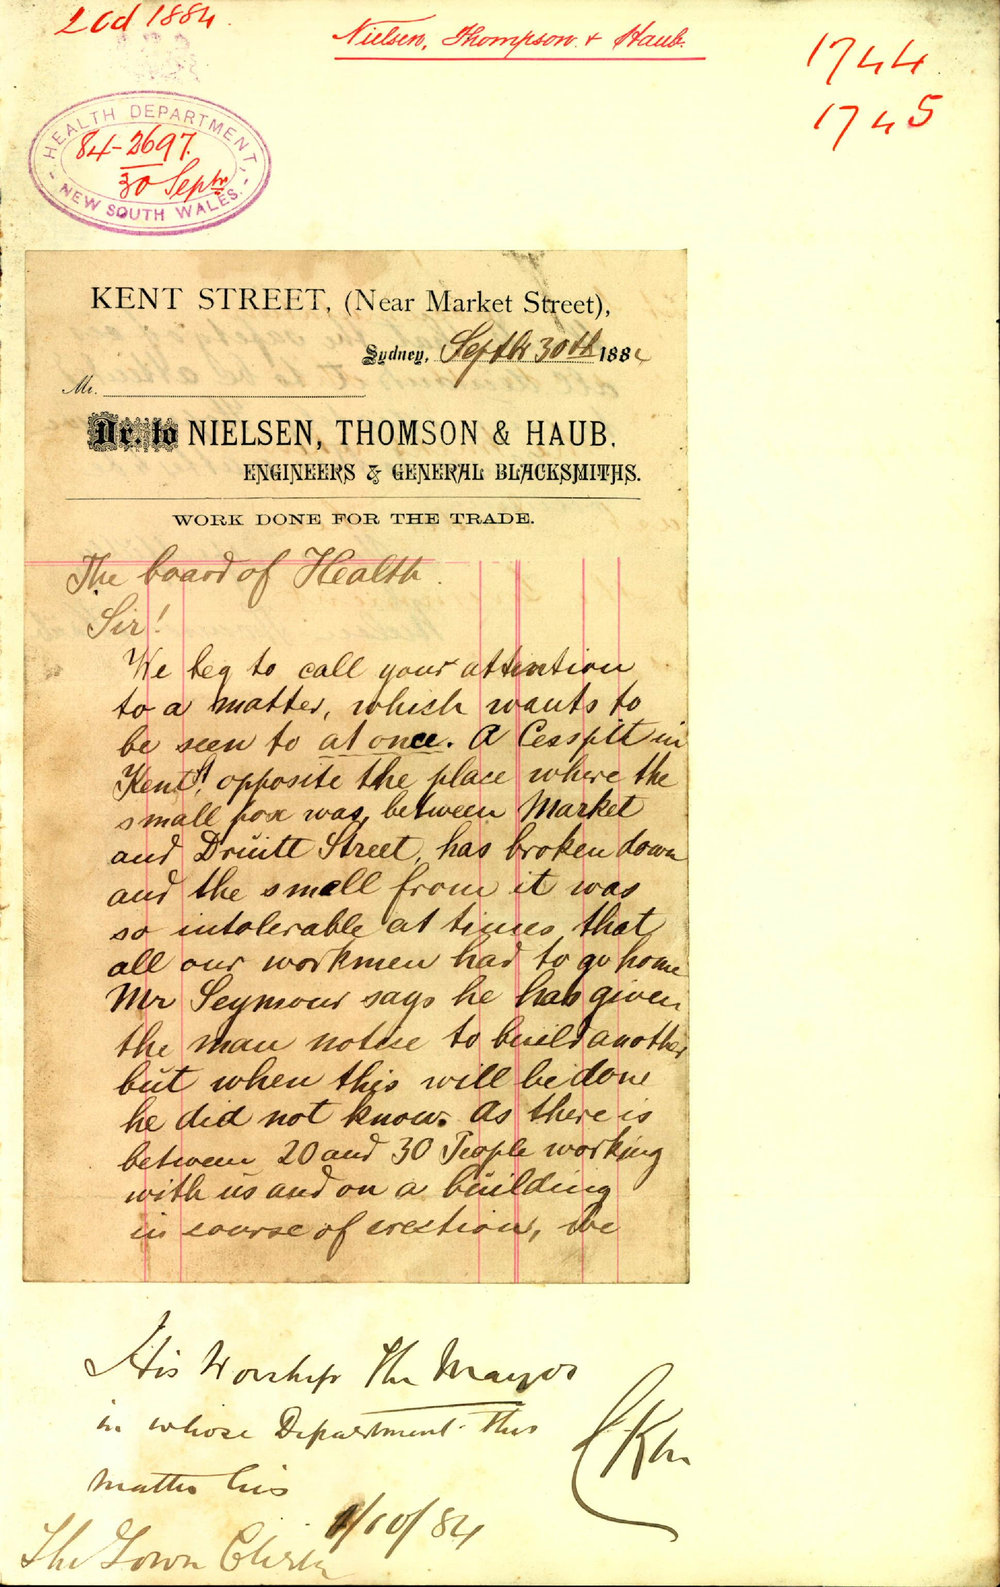 2 Od 1884.
Nielsen, Thompson & Haub.
1744
1745
HEALTH DEPARTMENT,
84-2697.
30 Septr
NEW SOUTH WALES.
KENT STREET, (Near Market Street),
Sydney, Septbr 30th 1884
Mr.
Dr. to NIELSEN, THOMSON & HAUB,
ENGINEERS & GENERAL BLACKSMITHS.
WORK DONE FOR THE TRADE.
The board of Health.
Sir!
We beg to call your attention
to a matter, which wants to
be seen to at once. A Cesspitt in
Kent St. opposite the place where the
small pox was, between Market
and Drüitt Street, has broken down
and the smell from it was
so intolerable at times, that
all our workmen had to go home
Mr Seymour says he has given
the man notise to build another
but when this will be done
he did not know. As there is
between 20 and 30 People working
with us and on a building
in course of erection, we
His Worship The Mayor
in whose Department this
matter lies
1/10/84
The Town Clerk